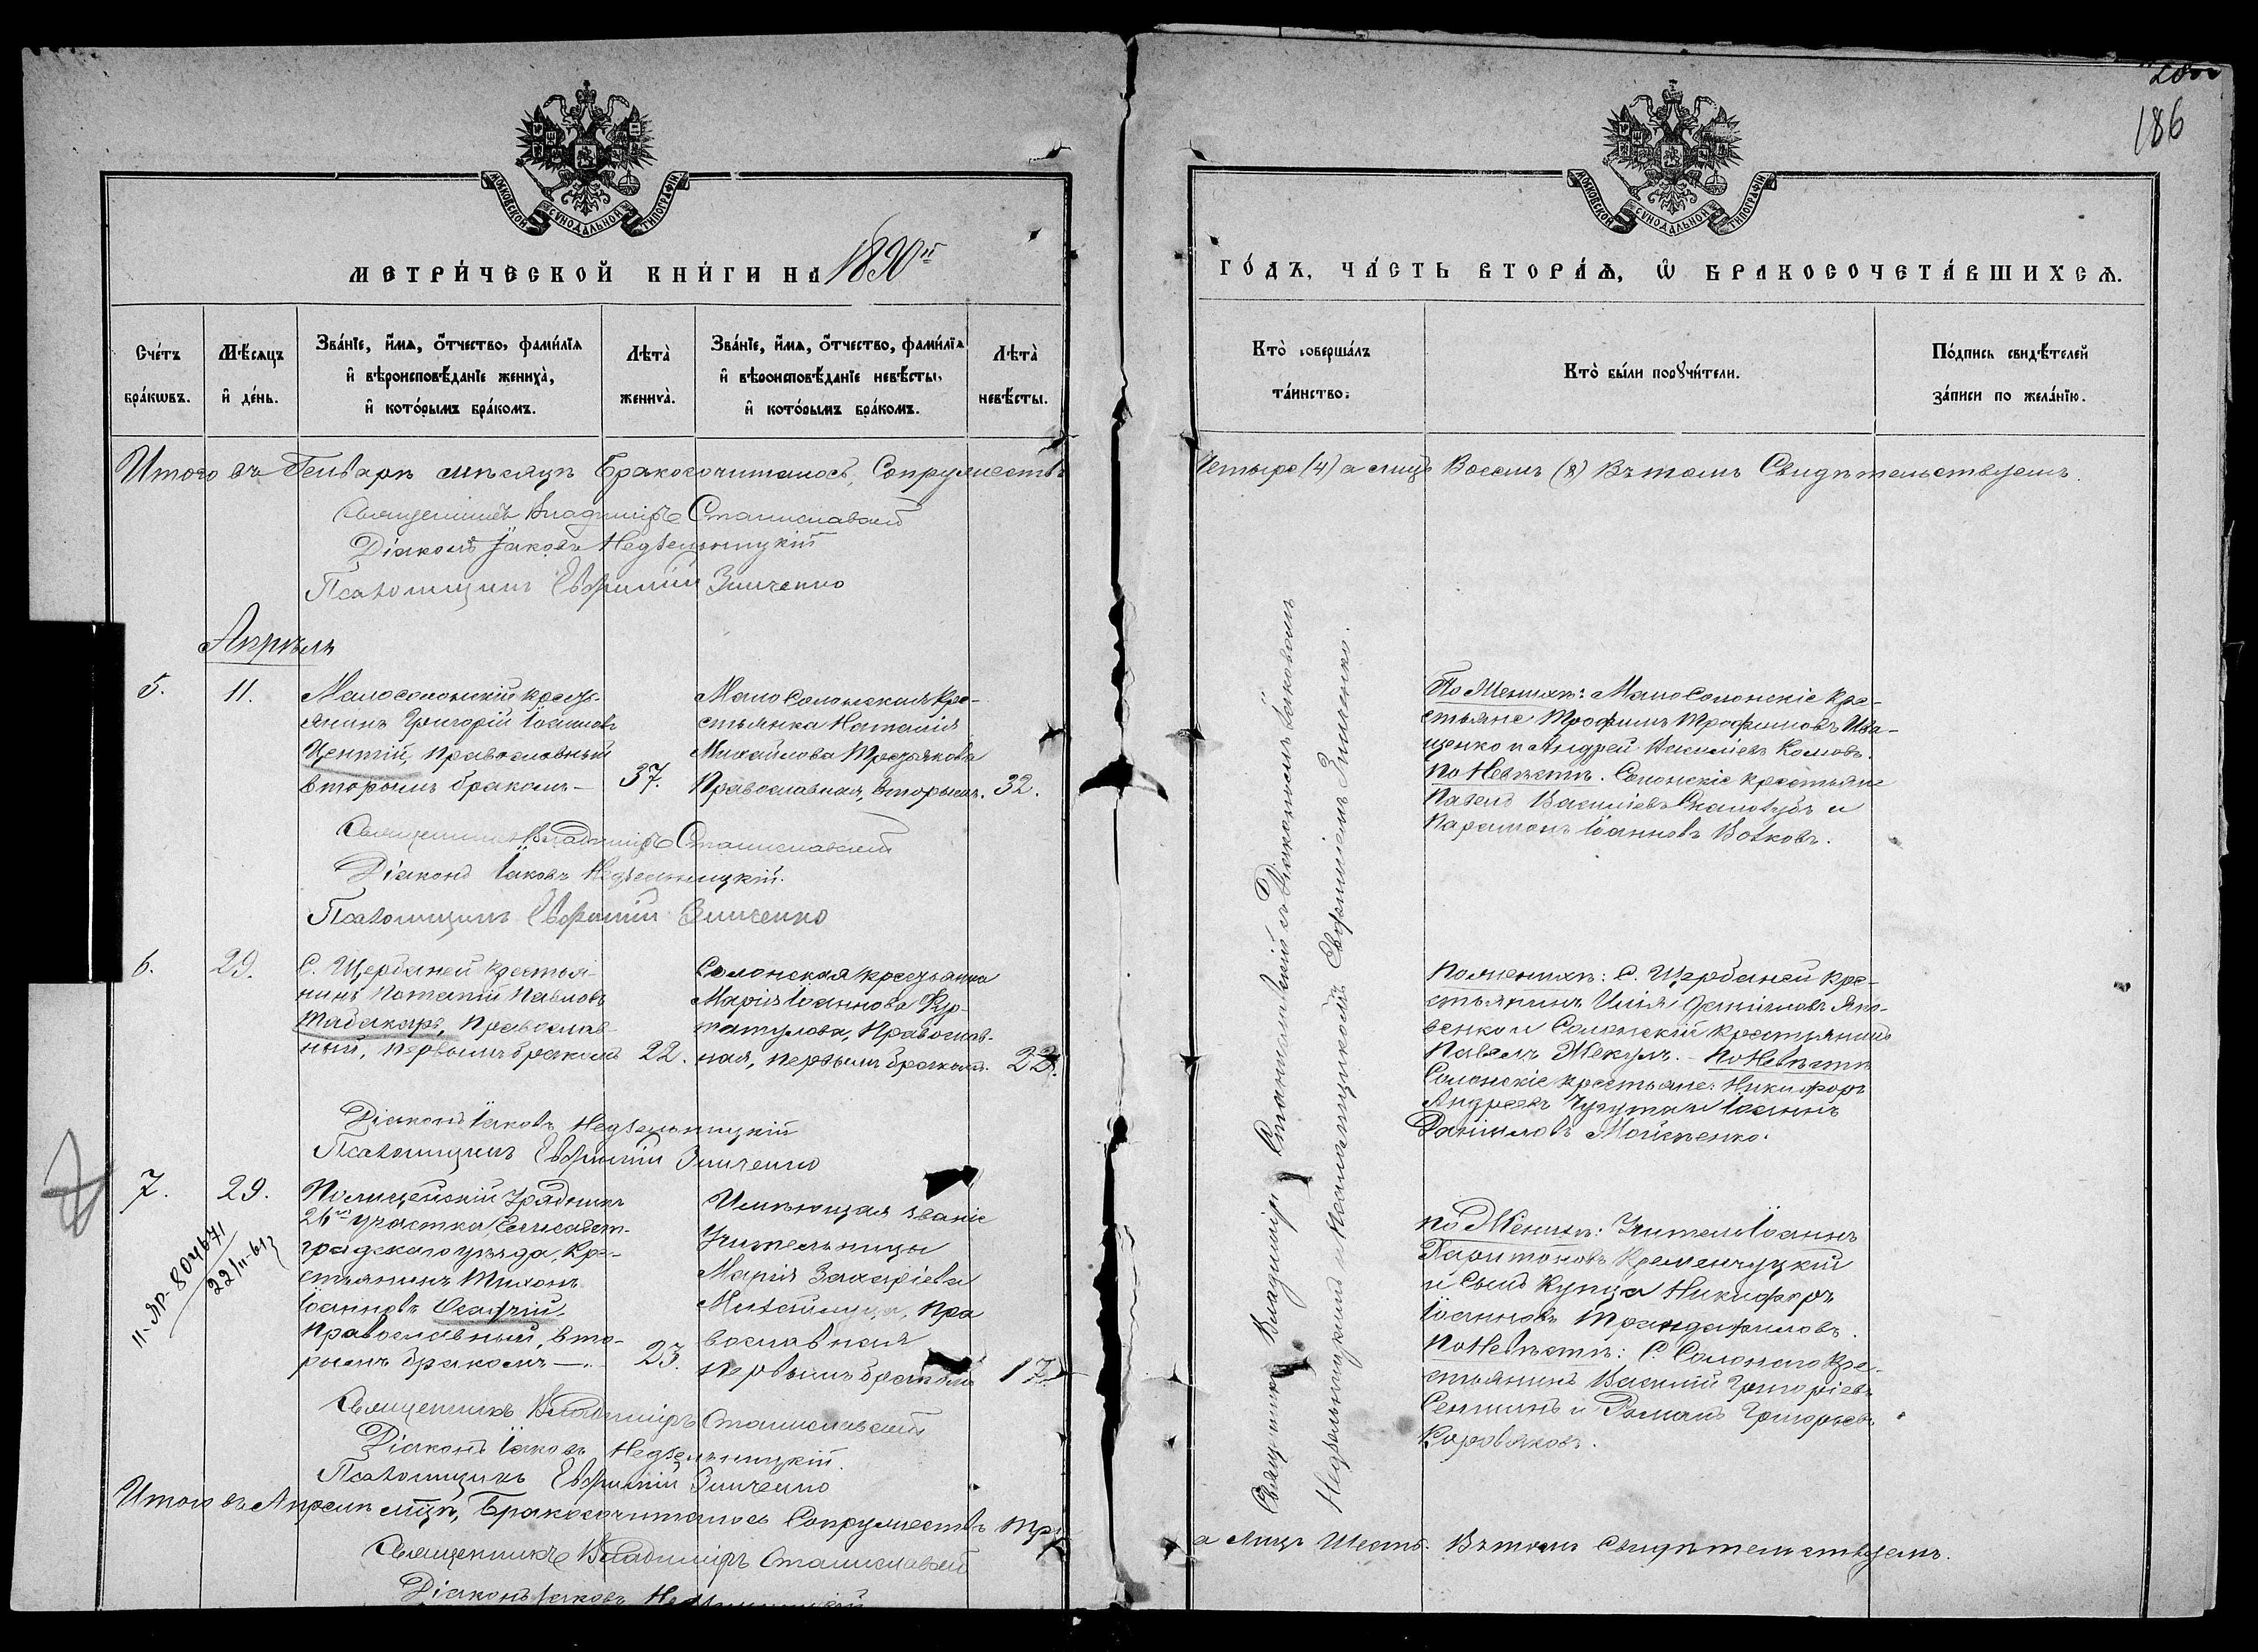 МОСКОВСКОЙ СѴНОДАЛЬНОЙ ТИПОГРАФІИ
МЕТРИ́ЧЕСКОЙ КНИ́ГИ НА 1890й
Сче́тъ бра́кѡвъ.
Мѣ́сяцъ и҆ де́нь.
Зва́нїе, и҆́мѧ, ѻ҆́тчество, фами́лїѧ
и҆ вѣроисповѣ́данїе жениха̀,
и҆ кото́рымъ бра́комъ.
Лѣта̀
жениха̀.
Зва́нїе, и҆́мѧ, ѻ҆́тчество, фами́лїѧ
и҆ вѣроисповѣ́данїе невѣ́сты,
и҆ кото́рымъ бра́комъ.
Лѣта̀
невѣ́сты.
Итого въ Генварѣ мѣсяцѣ Бракосочиталось, Сопружествъ
Священникъ Владиміръ Станиславскій
Діаконъ Іаковъ Недзельницкій
Псаломщикъ Евфимій Зинченко
Апрѣль
5.
11.
Малосолонскій кресть-
янинъ Григорій Іоанновъ
Центій, Православный
вторымъ бракомъ —
37.
Мало Солонская Кре-
стьянка Наталія
Михайлова Третякова
Православная, вторымъ.
32.
Священникъ Владиміръ Станиславскій
Діаконъ Іаковъ Недзельницкій.
Псаломщикъ Евфимій Зинченко
6.
29.
С. Щербаней крестья-
нинъ Потапій Павловъ
Табакарь, Православ-
ный, первымъ бракомъ
22.
Солонская крестьянка
Марія Іоаннова
Православ-
ная, первымъ бракомъ.
22.
Діаконъ Іаковъ Недзельницкій
Псаломщикъ Евфимій Зинченко
7.
29.
11. ЯР-804671
22/II-61г
Полицейскій Урядникъ
26го участка, Елисавет-
градскаго уѣзда, Кре-
стьянинъ Тихонъ
Іоанновъ Осадчій
Православный, вто-
рымъ бракомъ —
23.
Имѣющая званіе
Учительницы
Марія Захаріева
Пра
вославная
первымъ бракомъ
17.
Священникъ Владиміръ Станиславскій
Діаконъ Іаковъ Недзельницкій.
Псаломщикъ Евфимій Зинченко
Итого въ Апрелѣ мцѣ, Бракосочиталось Сопружествъ три
Священникъ Владиміръ Станиславскій
Діаконъ Іаковъ Недзельницкій
186
МОСКОВСКОЙ СѴНОДАЛЬНОЙ ТИПОГРАФІИ
ГО́ДЪ, ЧА́СТЬ ВТОРА́Ѧ, Ѡ҆ БРАКОСОЧЕТА́ВШИХСѦ.
Кто̀ соверша́лъ
та́инство.
Кто̀ бы́ли порꙋчи́тели.
По́дпись свидѣ́телей
за́писи по жела́нїю.
Четыре (4) а лицъ Восемь (8) Въ томъ Свидѣтельствуемъ.
Священникъ Владиміръ Станиславскій съ Діакономъ Іаковомъ
Недзельницкимъ и Псаломщикомъ Евфиміемъ Зинченко.
По Женихѣ: Мало Солонскіе Кре-
стьяне Трофимъ Трофимовъ Ива-
щенко и Андрей Василіевъ Комовъ.
По Невѣстѣ. Солонскіе крестьяне
Павелъ Василіевъ и
Парамонъ Іоанновъ Волковъ.
По женихѣ: С. Щербаней Кре-
стьянинъ Илія Даніиловъ Яко-
венко и Солонскій крестьянинъ
Павелъ Жекулъ. — По Невѣстѣ
Солонскіе крестьяне: Никифоръ
Андреевъ Чугутай и Іоаннъ
Даніиловъ Мойсѣенко.
По Женихѣ: Учитель Іоаннъ
Харитоновъ Кременчуцкій
и Сынъ Купца Никифоръ
Іоанновъ Трандафиловъ.
По Невѣстѣ: С. Солонаго Кре-
стьянинъ Василій Григоріевъ
Сенинъ и Романъ Григорьевъ
Коровяковъ.
а лицъ Шесть. Въ томъ Свидѣтельствуемъ.